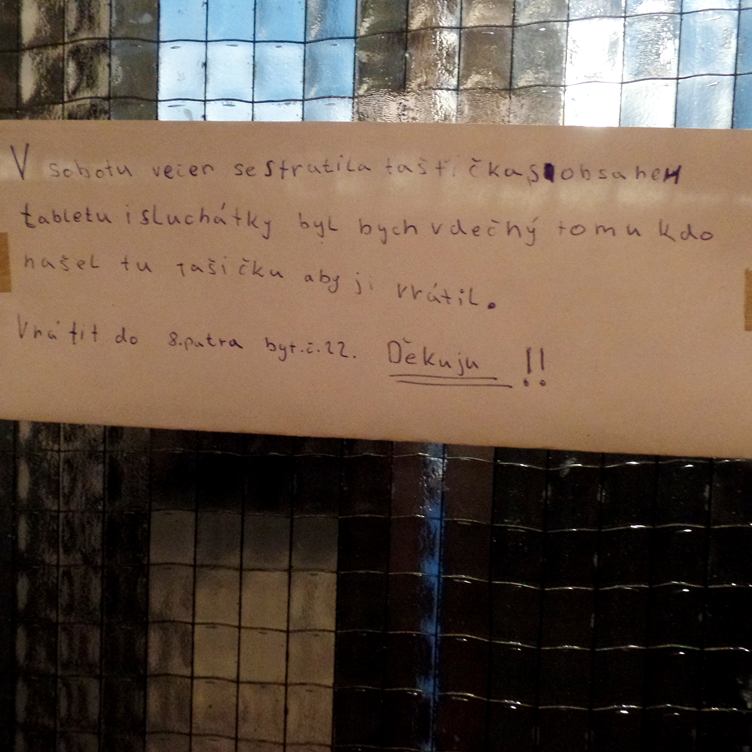 V sobotu vecer se stratila taštička s obsahem
tabletu i sluchátky byl bych vdečný tomu kdo
našel tu tašičku aby ji vrátil.
Vrátit do 8.patra byt.č.22. Děkuju !!